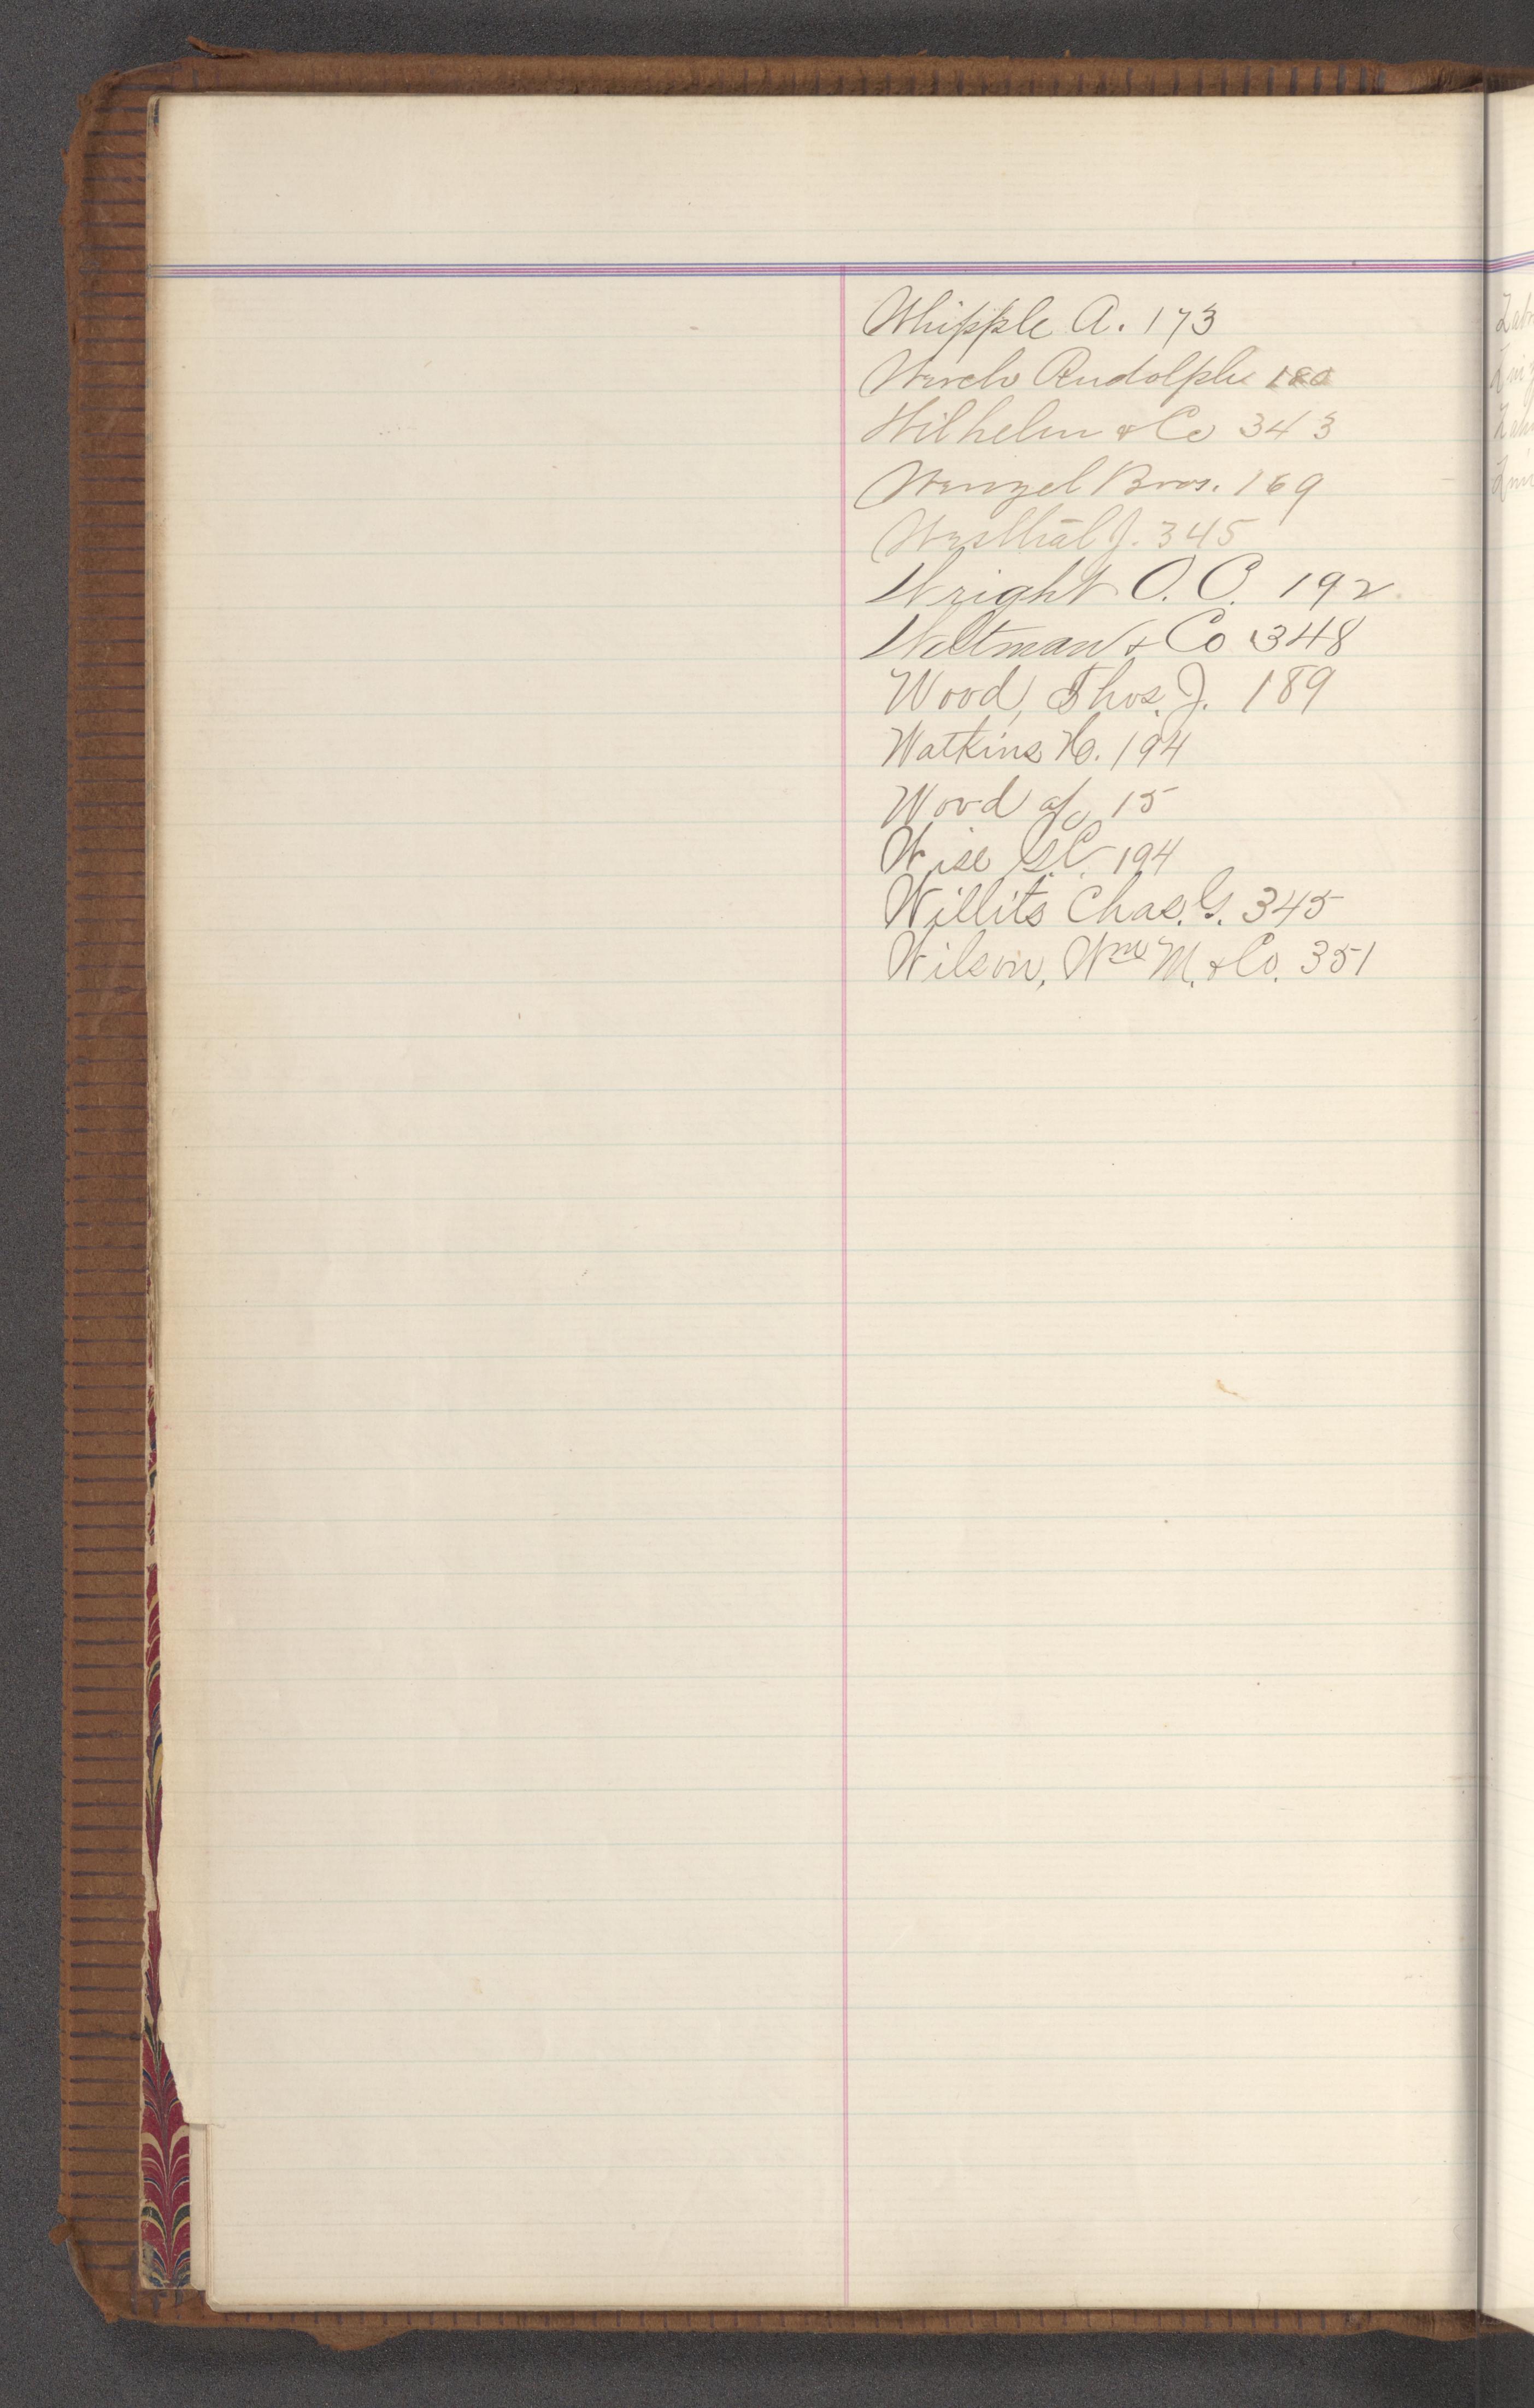 Whipple A. 173
Wirch Rudolph 180
Wilhelm & Co 343
Wenzel Bros. 169
Westhal J. 345
Wright O. C. 192
Weltman & Co 348
Wood, Thos. J. 189
Watkins H. 194
Wood a/c 15
Wise S.C. 194
Willits Chas. G. 345
Wilson, Wm M. & Co. 351